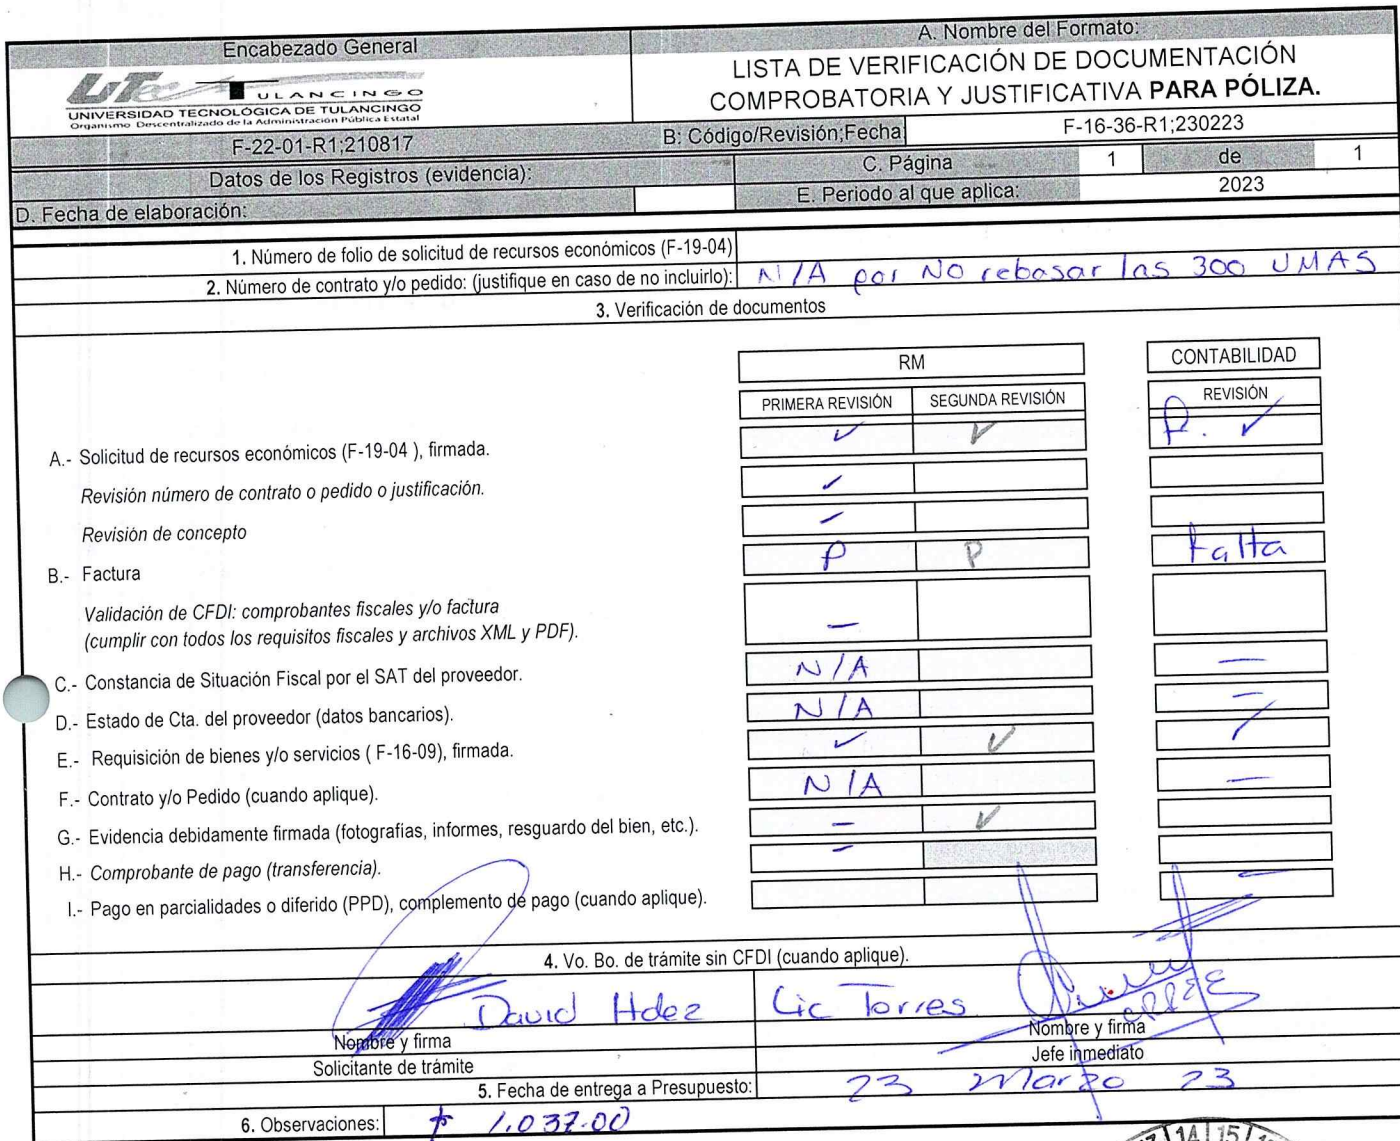 Encabezado General
A. Nombre del Formato:
UTec TULANCINGO
UNIVERSIDAD TECNOLÓGICA DE TULANCINGO
Organismo Descentralizado de la Administración Pública Estatal
LISTA DE VERIFICACIÓN DE DOCUMENTACIÓN
COMPROBATORIA Y JUSTIFICATIVA PARA PÓLIZA.
F-22-01-R1;210817
B: Código/Revisión;Fecha
F-16-36-R1;230223
Datos de los Registros (evidencia):
C. Página 1 de 1
D. Fecha de elaboración:
E. Periodo al que aplica: 2023
1. Número de folio de solicitud de recursos económicos (F-19-04)
2. Número de contrato y/o pedido: (justifique en caso de no incluirlo): N/A por NO rebasar las 300 UMAS
3. Verificación de documentos
RM
CONTABILIDAD
PRIMERA REVISIÓN SEGUNDA REVISIÓN REVISIÓN
A.- Solicitud de recursos económicos (F-19-04 ), firmada. ✓ ✓ P. ✓
Revisión número de contrato o pedido o justificación. ✓
Revisión de concepto
B.- Factura P P Falta
Validación de CFDI: comprobantes fiscales y/o factura
(cumplir con todos los requisitos fiscales y archivos XML y PDF). –
C.- Constancia de Situación Fiscal por el SAT del proveedor. N/A –
D.- Estado de Cta. del proveedor (datos bancarios). N/A –
E.- Requisición de bienes y/o servicios ( F-16-09), firmada. ✓ ✓ /
F.- Contrato y/o Pedido (cuando aplique). N/A –
G.- Evidencia debidamente firmada (fotografías, informes, resguardo del bien, etc.). – ✓
H.- Comprobante de pago (transferencia). –
I.- Pago en parcialidades o diferido (PPD), complemento de pago (cuando aplique).
4. Vo. Bo. de trámite sin CFDI (cuando aplique).
David Hdez Lic Torres
Nombre y firma Nombre y firma
Solicitante de trámite Jefe inmediato
5. Fecha de entrega a Presupuesto: 23 Marzo 23
6. Observaciones: $ 1,037.00
14 15